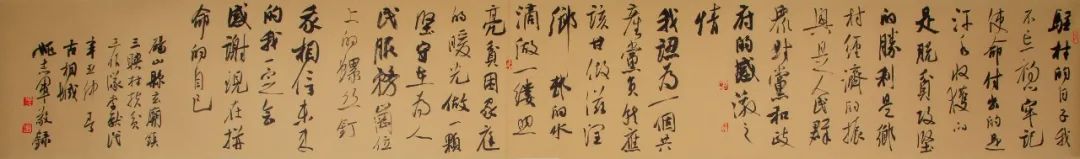 驻村的日子我
不忘初心牢记
使命付出的是
汗水收获的
是脱贫攻坚
的胜利是乡
村经济的振
兴是人民群
众对党和政
府的感激之
情
我认为一个共
产党员就应
该甘做滋润
乡村的水
滴做一缕照
亮贫困家庭
的暖光做一颗
坚守在为人
民服务岗位
上的螺丝钉
我相信未来
的我一定会
感谢现在拼
命的自己
砀山县玄庙镇
三联村扶贫
工作队李新战
辛丑仲春
古相城
姚志军敬录